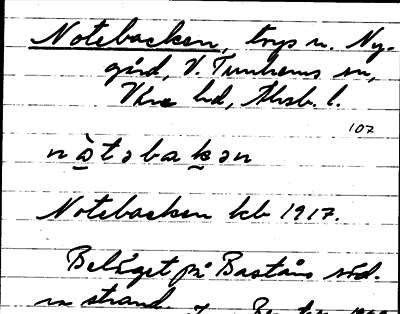 Notebacken, torp u. Ny-
gård, V. Tunhems sn,
Väne hd, Älvsb. l.
107
nòtəbakən
Notebacken kb 1917.
Beläget på Baståns söd-
ra strand.